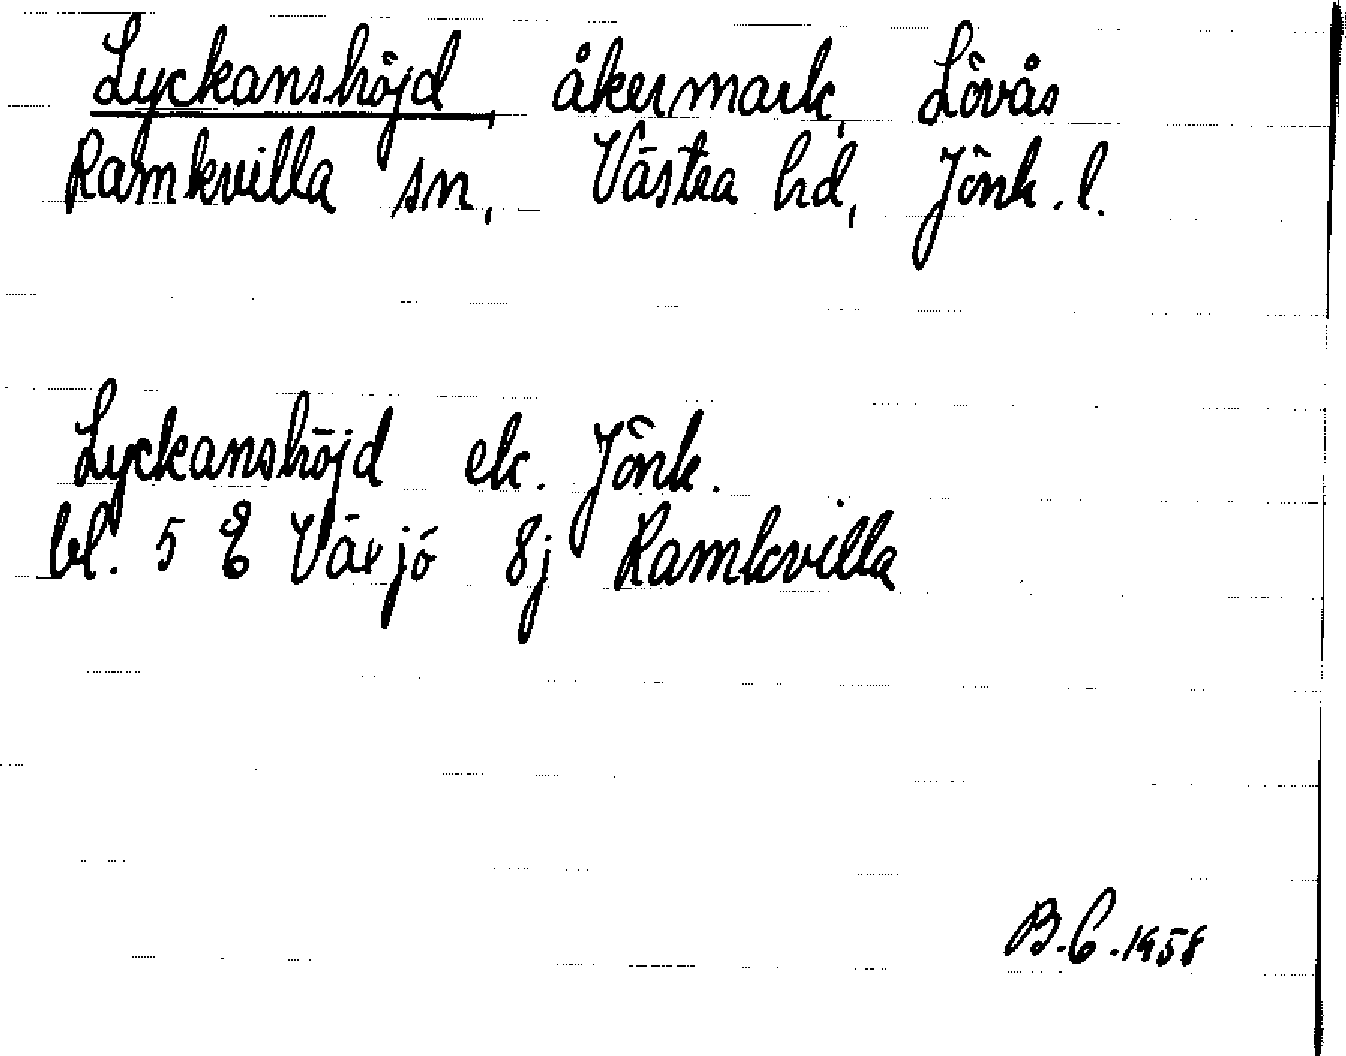 Lyckanshöjd, åkermark, Lövås
Ramkvilla sn, Västra hd, Jönk. l.
Lyckanshöjd ek. Jönk.
bl. 5 E Växjö 8j Ramkvilla
B.C. 1958